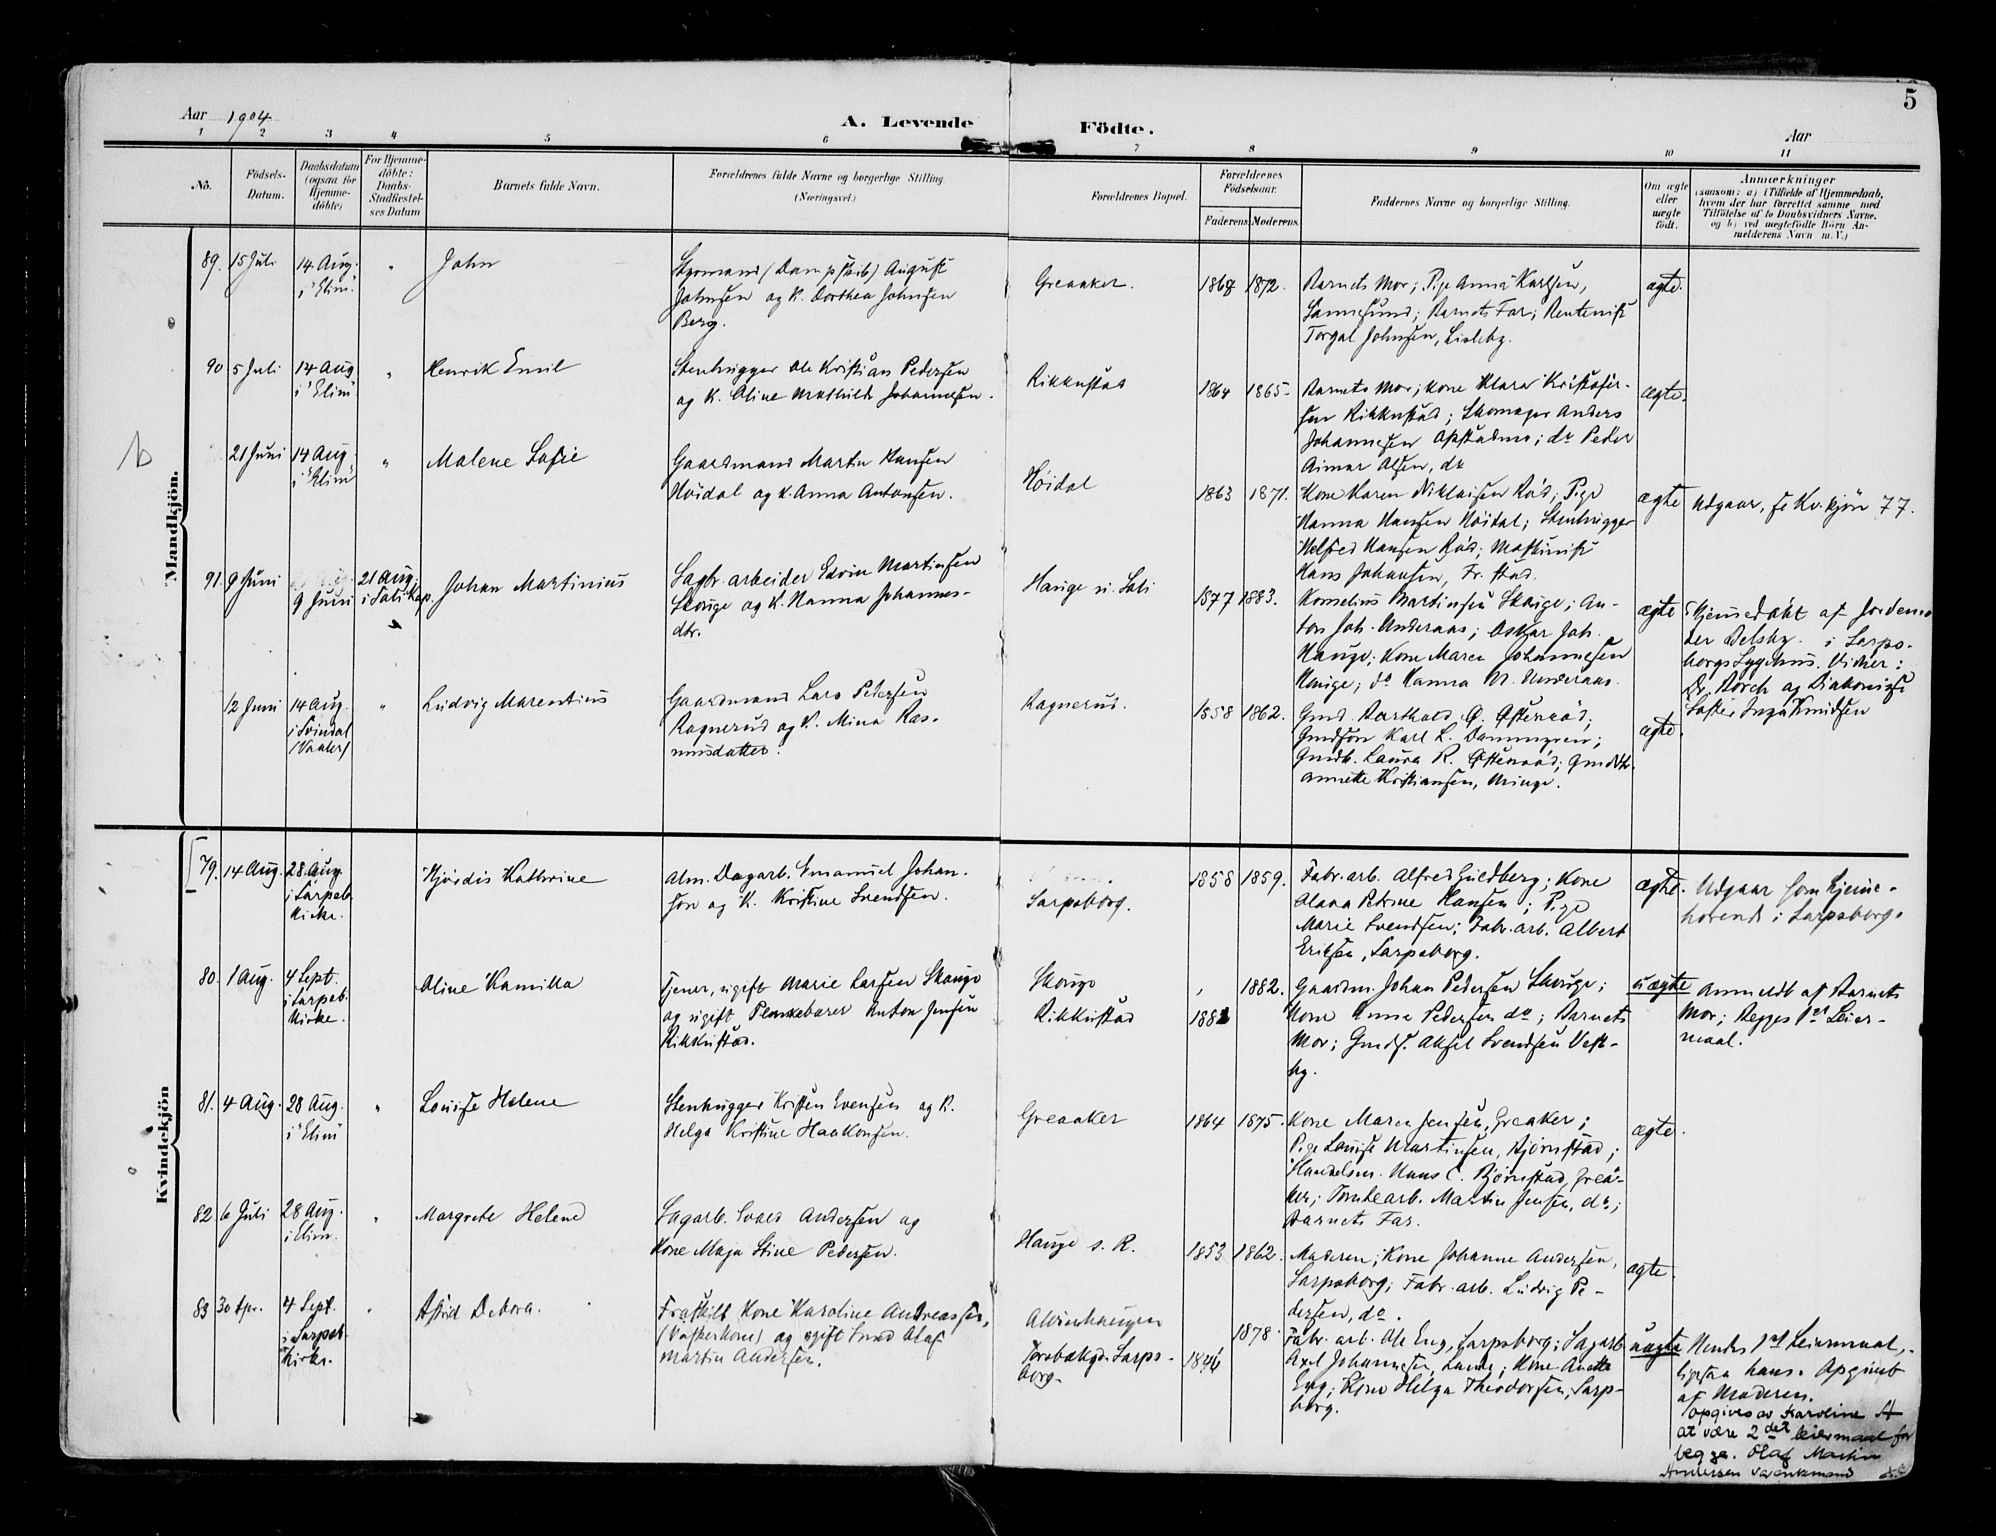 5
Aar 1904
A. Levende Födte.
Aar
1 2 3 4 5 6 7 8 9 10 11
No.
Födsels-Datum.
Daabsdatum (ogsaa for Hjemme-döbte)
For Hjemme-döbte: Daabs-Stadfæstel-ses Datum
Barnets fulde Navn.
Forældrenes fulde Navne og borgerlige Stilling. (Næringsvei.)
Forældrenes Bopæl.
Forældrenes Födselsaar.
Faderens. Moderens.
Faddernes Navne og borgerlige Stilling.
Om ægte eller uægte födt.
Anmærkninger
(saasom: a) i Tilfælde af Hjemmedaab, hvem der har forrettet samme med Tilföielse af to Daabsvidners Navne, og b) ved uægtefödte Börn Anmelderens Navn m. V.)
Mandkjön.
89. 15 Juli
14 Aug. i "Elim".
"
John
Styrmand (Dampskib) August
Johnsen og K. Dorthea Johnsen
Berg.
Greaaker.
1868 1872.
Barnets Mor; Pige Anna Karlsen,
Sannesund; Barnets Far; Rentenist
Torgal Johnsen, Lisleby.
ægte.
90 5 Juli
14 Aug. i "Elim".
"
Henrik Emil
Stenhugger Ole Kristian Pedersen
og K. Oline Mathilde Johannesen.
Rikkustad
1864 1865-
Barnets Mor; Kone Klara Kristofer-
sen Rikkustad; Skomager Anders
Johannesen Opstadmo; do Peder
Aimar Olsen, do
ægte.
21 Juni
14 Aug. i "Elim"
"
Malene Sofie
Gaardmand Martin Hansen
Höidal og K. Anna Antonsen.
Höidal
1863 1871.
Kone Karen Niklaisen Röd; Pige
Hanna Hansen Höidal; Stenhugger
Helfred Hansen Röd; Maskinist
Hans Johansen, Fr.stad.
ægte
Udgaar, se Kv.kjön 77.
91. 9 Juni
9 Juni
21 Aug. i Soli Kap.
Johan Martinius
Sagbr.arbeider Edvin Martinsen
Skouge og K. Hanna Johannes-
dtr.
Hauge u. Soli
1877 1883.
Kornelius Martinsen Skouge; An-
ton Joh. Underaas; Oskar Joh.
Hauge; Kone Maren Johannesen
Hauge; do Hanna M. Underaas.
ægte
Hjemmedöbt af Jordemo-
der Delsby i Sarps-
borgs Sygehus. Vidner:
Dr. Borch og Diakonisse
Söster Inga Knudsen
12 Juni
14 Aug. i Svindal (Vaaler)
"
Ludvig Marentius
Gaardmand Lars Petersen
Ragnerud og K. Mina Ras-
musdatter.
Ragnerud.
1858 1862.
Gmd. Barthold O. Österröd;
Gmdsön Karl L. Dammyren;
Gmdk. Laura R. Österröd; Gmddtr.
Annette Kristiansen, Minge.
ægte.
Kvindekjön
79. 14 Aug.
28 Aug. i Sarpsb. Kirke.
Hjördis Kathrine
Alm. Dagarb. Emanuel Johan-
sen og K. Kristine Svendsen.
Sarpsborg.
1858 1859.
Fabr.arb. Alfred Guldberg; Kone
Olava Petrine Hansen; Pige
Marie Svendsen; Fabr.arb. Albert
Eriksen, Sarpsborg.
ægte.
Udgaar som hjemme-
hörende i Sarpsborg.
80. 1 Aug.
4 Sept. i Sarpsb. Kirke.
Aline Kamilla
Tjener, ugift Marie Larsen Skouge
og ugift Plankebærer Anton Jensen
Rikkustad.
Skouge
Rikkustad
1882.
1882
Gaardm. Johan Pedersen Skouge;
Kone Anna Pedersen do; Barnets
Mor; Gmds. Aksel Svendsen Vest-
by.
uægte
Anmeldt af Barnets
Mor; Begges 1st Leier-
maal.
81. 4 Aug.
28 Aug. i "Elim"
"
Lovise Helene
Stenhugger Kristen Evensen og K.
Helga Kristine Haakonsen.
Greaaker
1864 1875.
Kone Maren Jensen, Greaker;
Pige Lovise Martinsen, Bjørnstad;
Handelsm. Hans C. Bjørnstad, Greå-
ker; Tomtearb. Martin Jensen, do;
Barnets Far.
ægte.
82 6 Juli
28 Aug. i Elim.
"
Margrete Helene
Sagarb. Evald Andersen og
Kone Maja Stine Pedersen.
Hauge s. R.
1853 1862.
Moderen; Kone Johanne Andersen,
Sarpsborg; Fabr.arb. Ludvig Pe-
dersen, do.
ægte.
83 30 Apr.
4 Sept. i Sarpsb. Kirke.
"
Astrid Debora.
Fraskilt Kone Karoline Andreassen,
(Vaskerkone) og ugift Smed Olaf
Martin Andersen.
Alvimhaugen
Torsbækgd. Sarps-
borg.
1878.
1846
Fabr.arb. Ole Eng, Sarpsborg; Sagarb.
Axel Johannesen, Lande; Kone Anette
Eng; Kone Helga Theodorsen, Sarps-
borg.
uægte
Hendes 1st Leiermaal,
ligesaa hans. Opgivet
af Moderen.
Opgives av Karoline A
at være 2det leiermaal for
begge. Olaf Martin
Andersen